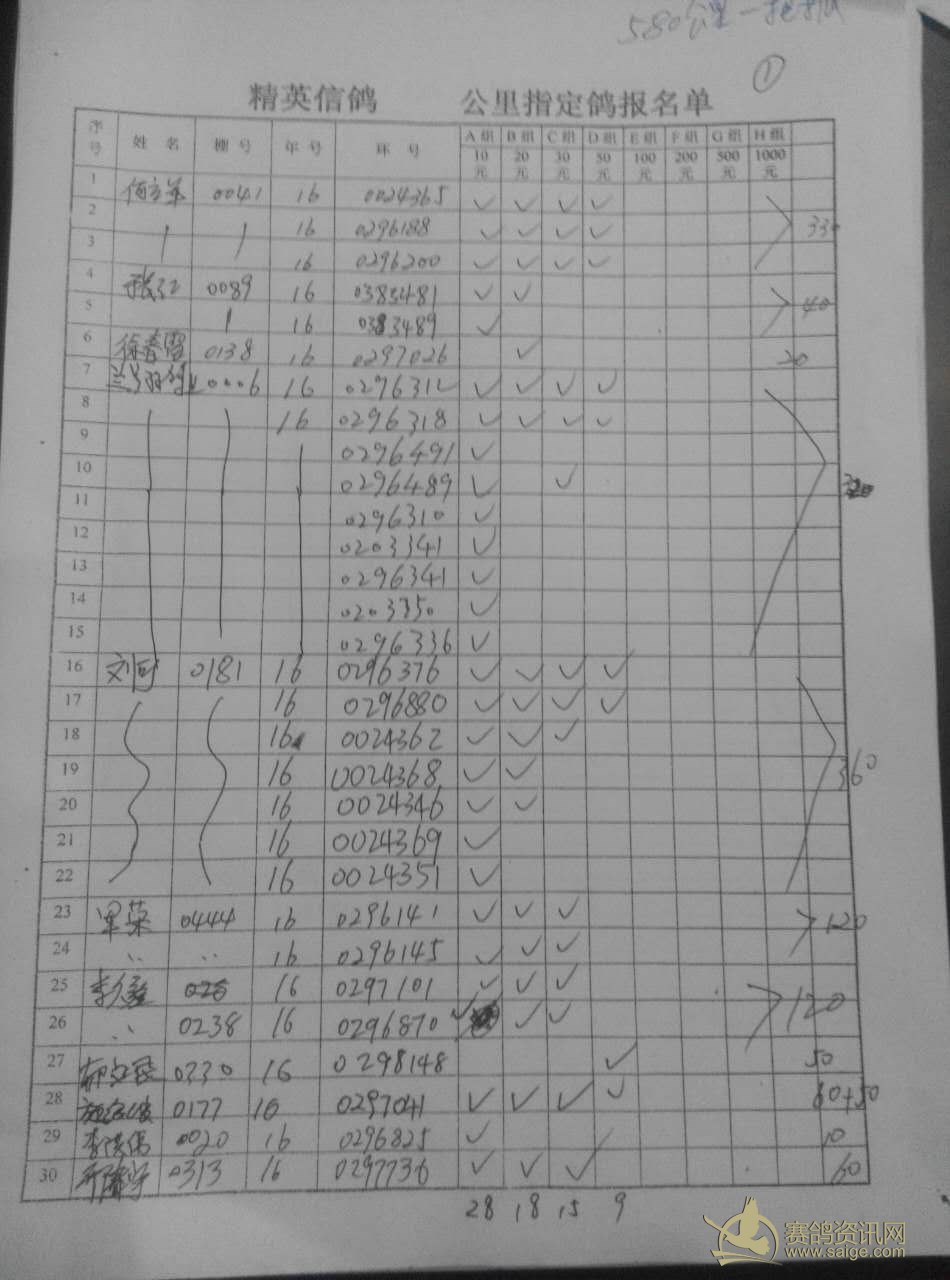 580公里
①
精英信鸽 公里指定鸽报名单
序号 姓名 棚号 年号 环号 A组10元 B组20元 C组30元 D组50元 E组100元 F组200元 G组500元 H组1000元
1 0041 16 0024365 ✓ ✓ ✓ ✓
2 16 0296188 ✓ ✓ ✓ ✓ 330
3 16 0296200 ✓ ✓ ✓ ✓
4 张江 0089 16 0383481 ✓ ✓
5 16 0383489 ✓ 40
6 徐春雷 0138 16 0297026 ✓ 20
7 0006 16 0296312 ✓ ✓ ✓ ✓
8 16 0296318 ✓ ✓ ✓ ✓
9 0296491 ✓
10 0296489 ✓ ✓
11 0296310 ✓
12 0203341 ✓
13 0296341 ✓
14 0203350 ✓
15 0296336 ✓
16 0181 16 0296376 ✓ ✓ ✓ ✓
17 16 0296880 ✓ ✓ ✓ ✓
18 16 0024362 ✓ ✓ ✓
19 16 0024368 ✓ ✓ 360
20 16 0024346 ✓ ✓
21 16 0024369 ✓
22 16 0024351 ✓
23 0444 16 0296141 ✓ ✓ ✓ 120
24 16 0296145 ✓ ✓ ✓
25 16 0297101 ✓ ✓ ✓ 120
26 0238 16 0296870 ✓ ✓ ✓
27 0330 16 0298148 ✓ 50
28 0177 16 0297041 ✓ ✓ ✓ ✓ 60+50
29 0020 16 0296825 ✓ 10
30 0313 16 0297736 ✓ ✓ ✓ 60
28 18 15 9
赛鸽资讯网
www.saige.com